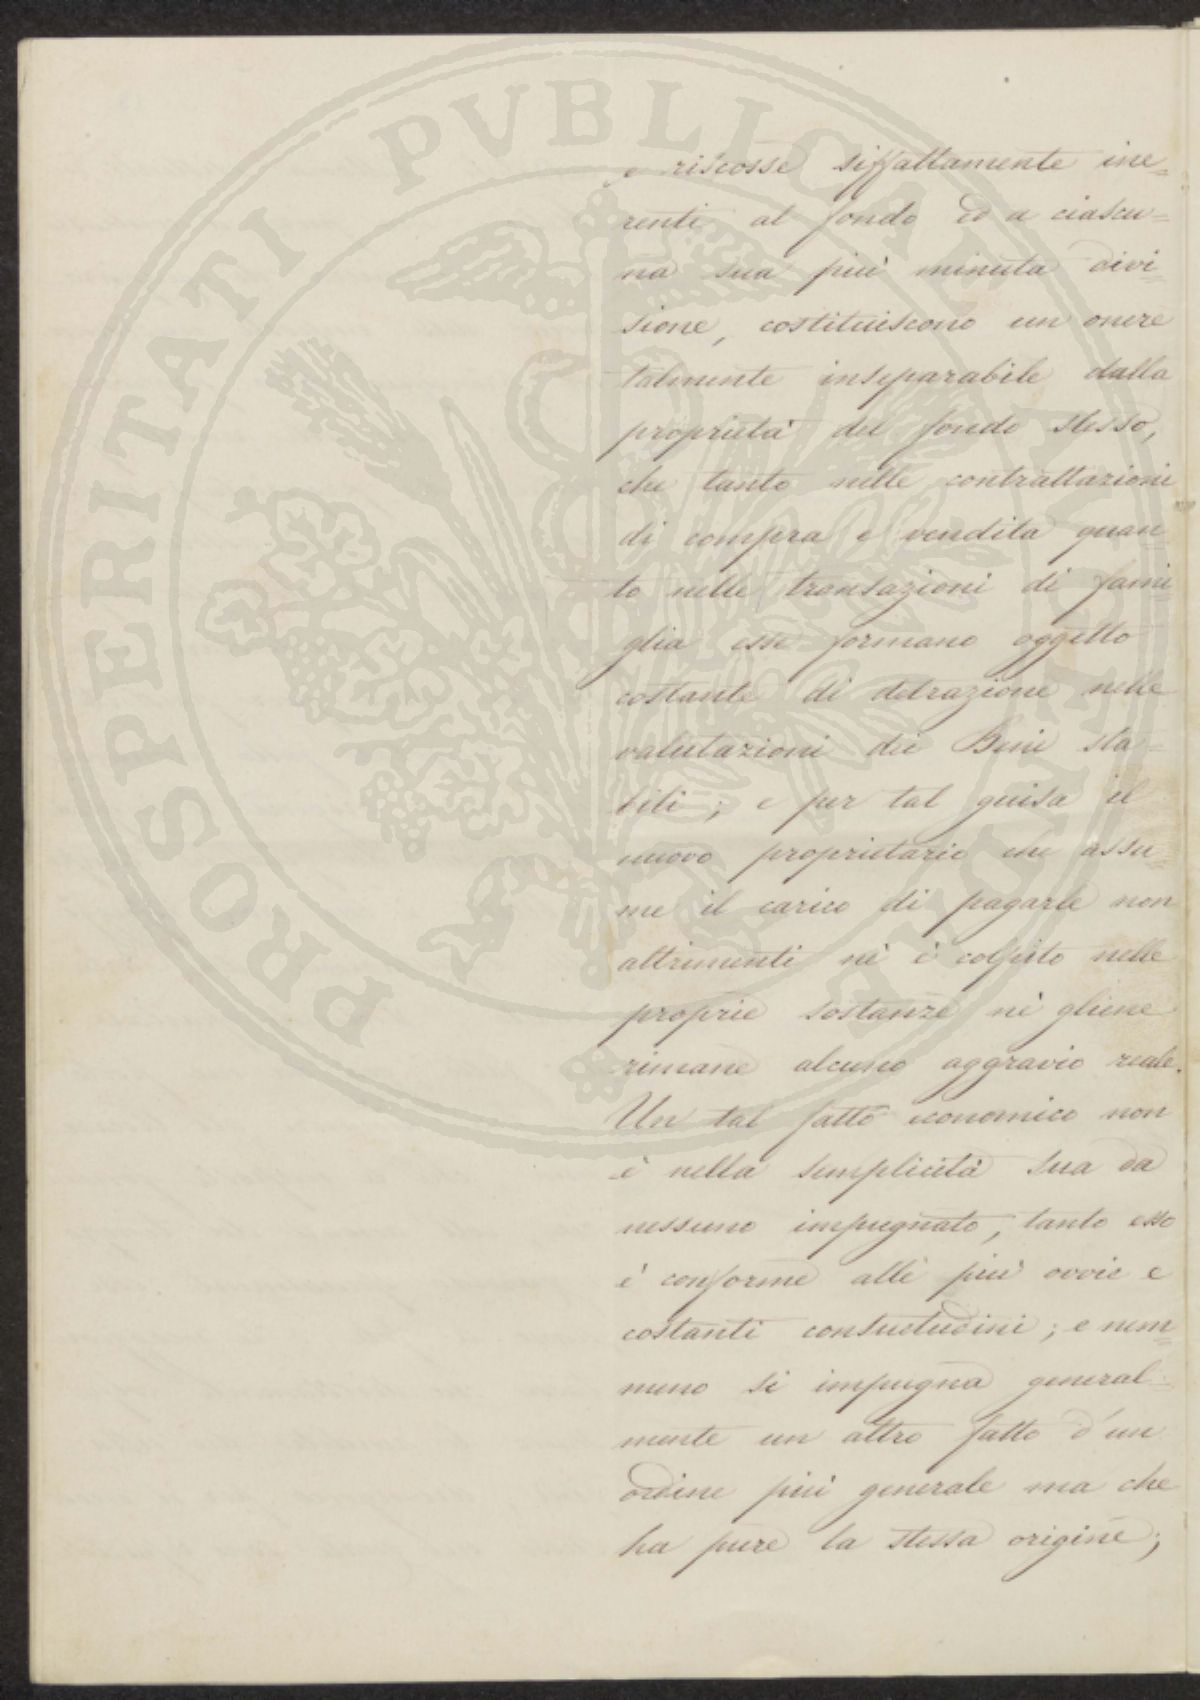 e riscosse siffattamente ine=
renti al fondo ed a ciascu=
na sua più minuta divi=
sione, costituiscono un onere
talmente inseparabile dalla
proprietà del fondo stesso,
che tanto nelle contrattazioni
di compra e vendita quan=
to nelle transazioni di fami=
glia esse formano oggetto
costante di detrazione nelle
valutazioni dei Beni sta=
bili; e per tal guisa il
nuovo proprietario che assu=
me il carico di pagarle non
altrimenti nè è colpito nelle
proprie sostanze nè gliene
rimane alcuno aggravio reale.
Un tal fatto economico non
è nella semplicità sua da
nessuno impugnato, tanto esso
è conforme alle più ovvie e
costanti consuetudini; e nem=
meno si impugna general=
mente un altro fatto d'un
ordine più generale ma che
ha pure la stessa origine;
PROSPERITATI PVBLICAE